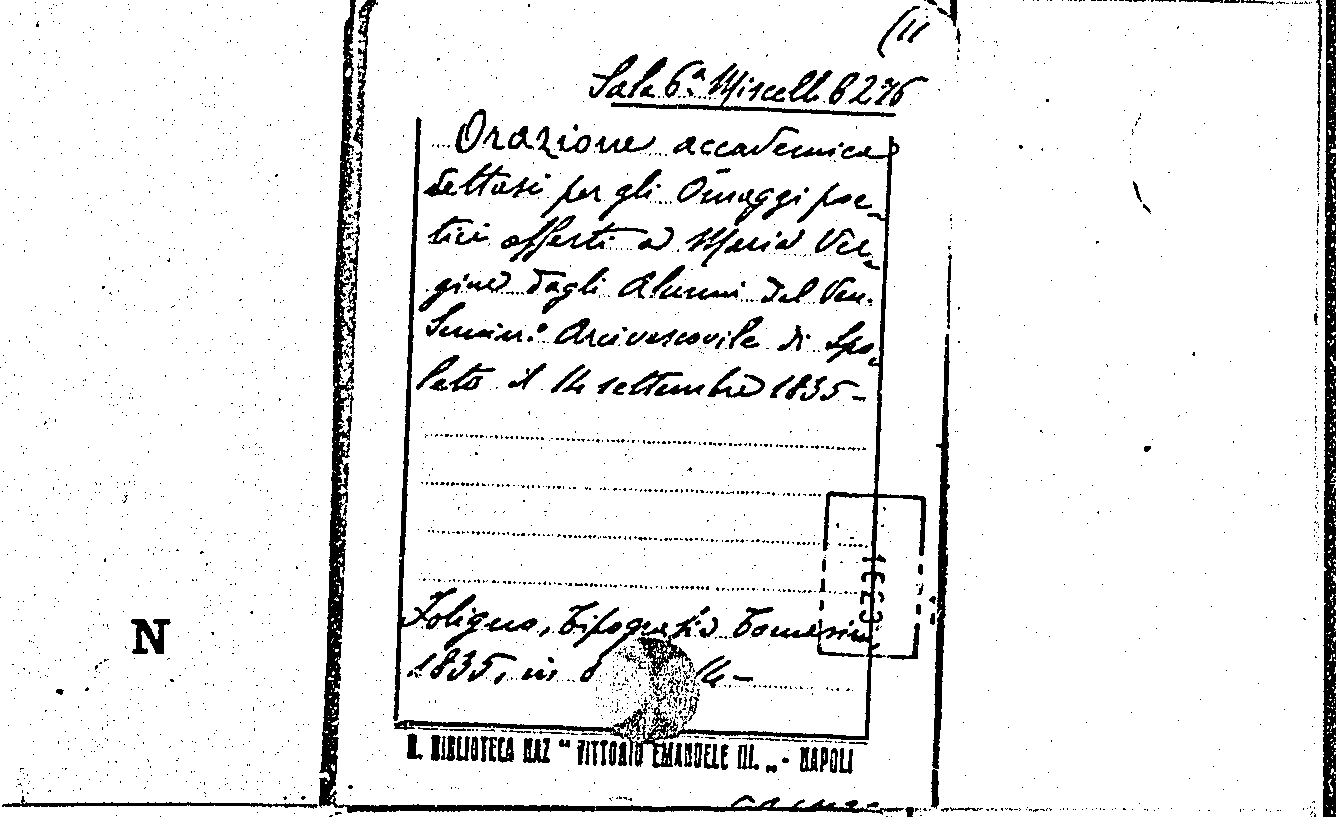 (11
Sala 6ª Miscell B 276
Orazione accademica
dettasi per gli Omaggi poe-
tici offerti a Maria Ver-
gine dagli Alunni del Ven.
Semin.º Arcivescovile di Spo-
leto il 14 settembre 1835-
Foligno, Tipografia Tomassini,
1835, in 8 14-
N
R. BIBLIOTECA NAZ " VITTORIO EMANUELE III. „ - NAPOLI